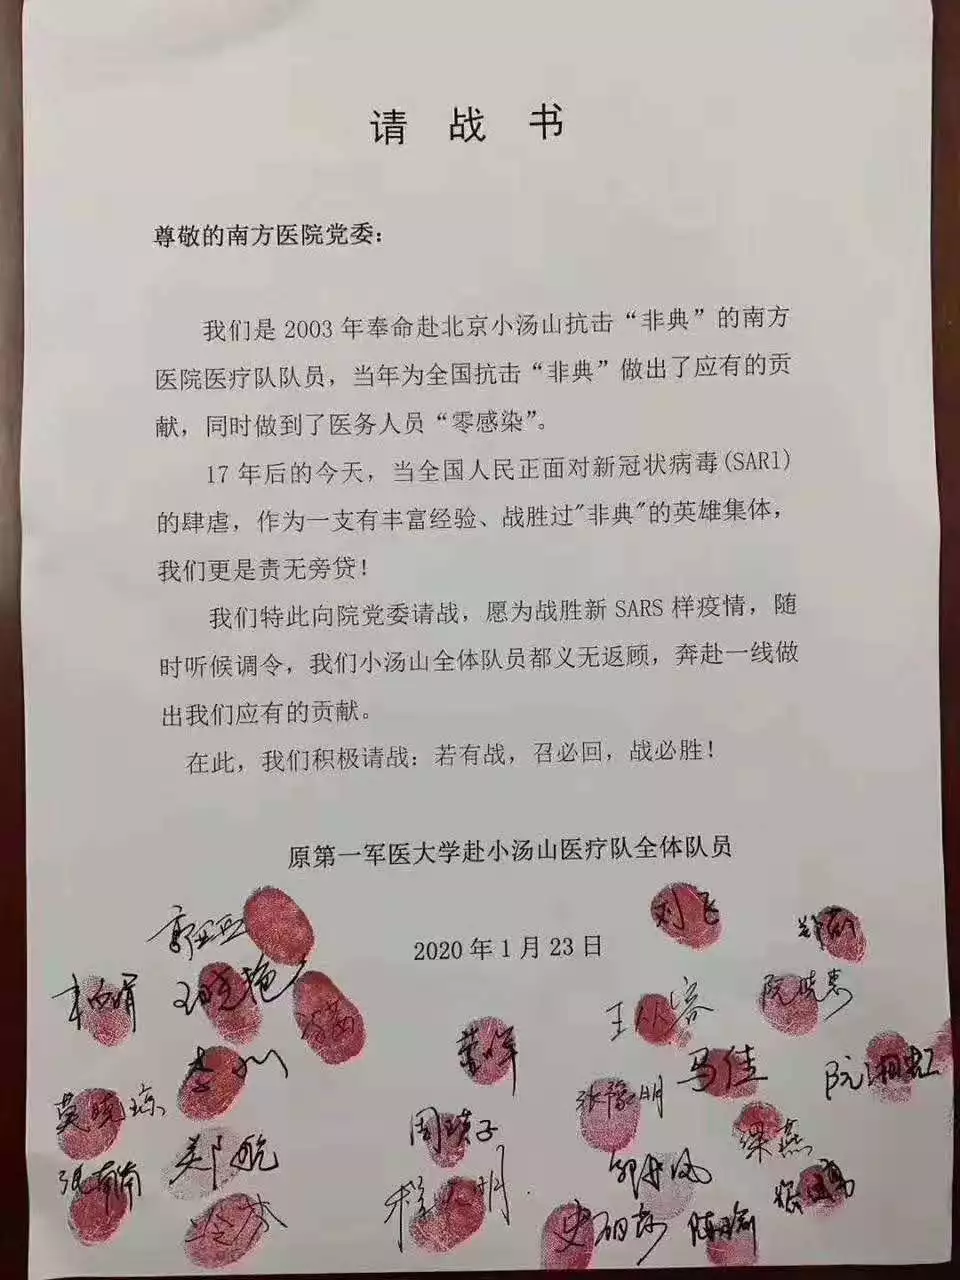 请战书
尊敬的南方医院党委：
我们是 2003 年奉命赴北京小汤山抗击“非典”的南方
医院医疗队队员，当年为全国抗击“非典”做出了应有的贡
献，同时做到了医务人员“零感染”。
17 年后的今天，当全国人民正面对新冠状病毒(SARI)
的肆虐，作为一支有丰富经验、战胜过"非典"的英雄集体，
我们更是责无旁贷！
我们特此向院党委请战，愿为战胜新 SARS 样疫情，随
时听候调令，我们小汤山全体队员都义无返顾，奔赴一线做
出我们应有的贡献。
在此，我们积极请战：若有战，召必回，战必胜！
原第一军医大学赴小汤山医疗队全体队员
刘飞
郭亚
2020 年 1 月 23 日
阮晓惠
李川
马佳
阮湘虹
张豫明
莫晓琼
周瑛子
梁燕
郑航
张南南
陈瑜